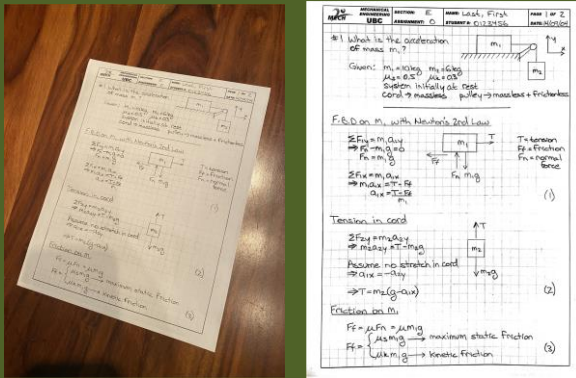 MECH 2
MECHANICAL ENGINEERING UBC
SECTION: E
ASSIGNMENT: 0
NAME: Last, First
STUDENT #: 0123456
PAGE 1 OF 2
#1 What is the acceleration
of mass m₁?
Given: m₁=10kg m₂=6kg
μs=0.5 μk=0.3
system initially at rest
cord → massless pulley → massless + frictionless
m₁
m₂
y
x
F.B.D on m₁ with Newton's 2nd Law
ΣF₁y=m₁a₁y
⇒ Fn-m₁g=0
Fn=m₁g
ΣF₁x=m₁a₁x
⇒ m₁a₁x=T-Ff
a₁x=T-Ff/m₁
m₁
T
Ff
Fn m₁g
T=tension
Ff=friction
Fn=normal
force
(1)
Tension in cord
ΣF₂y=m₂a₂y
⇒ m₂a₂y=T-m₂g
Assume no stretch in cord
⇒ a₁x=-a₂y
⇒ T=m₂(g-a₁x)
T
m₂
m₂g
(2)
Friction on m₁
Ff=μFn=μm₁g
Ff={μsm₁g → maximum static friction
μkm₁g → kinetic friction
(3)